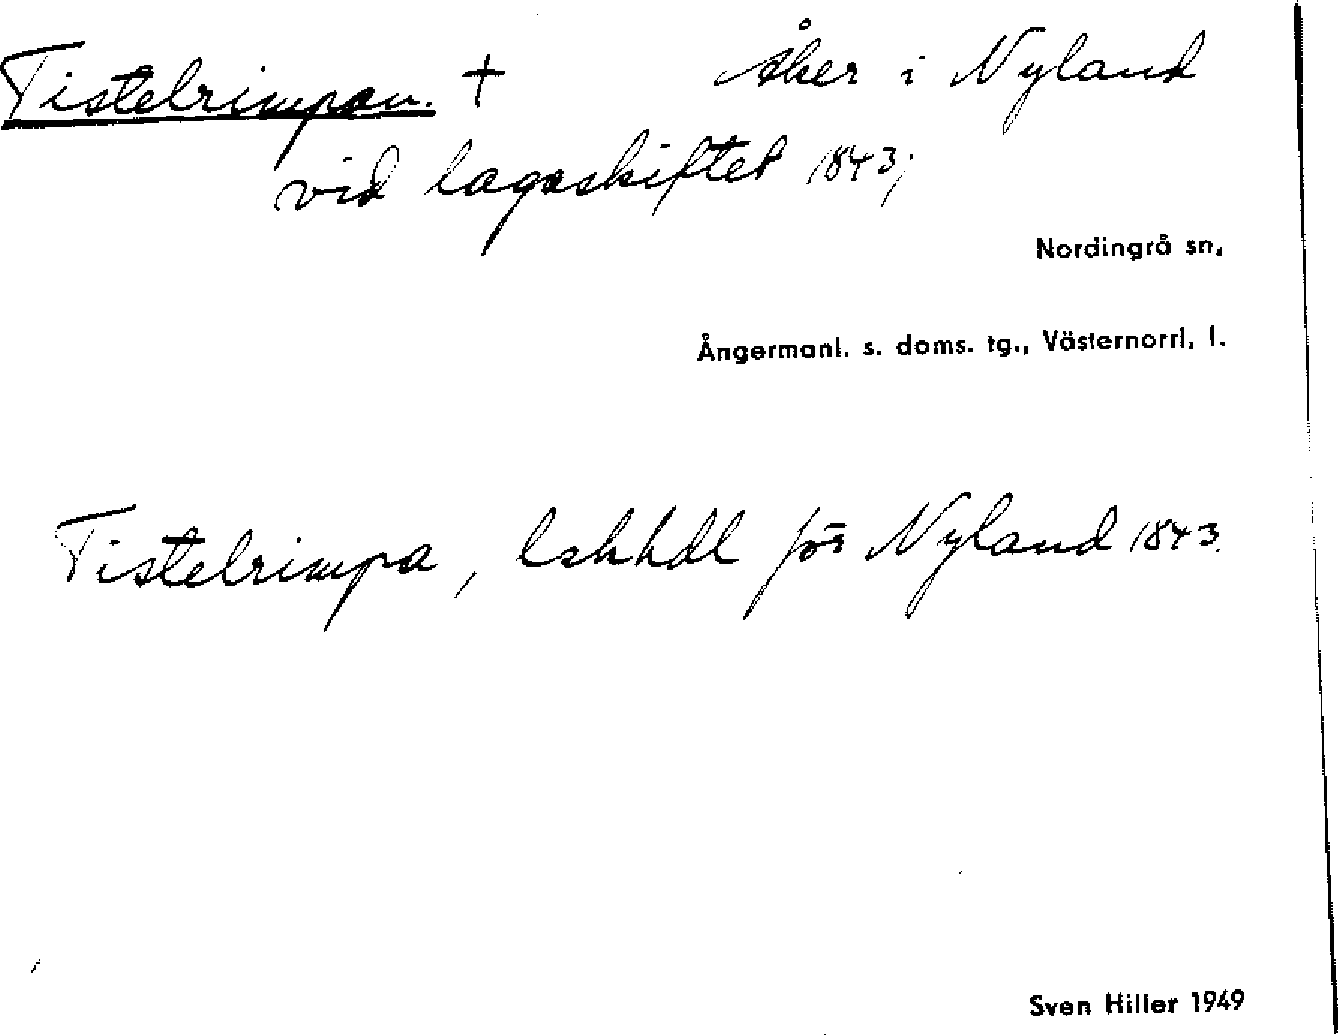 Tistelrimpan. + åker i Nyland
vid lagaskiftet 1843;
Nordingrå sn,
Ångermanl. s. doms. tg., Västernorrl. l.
Tistelrimpa, lskhdl för Nyland 1843.
Sven Hiller 1949